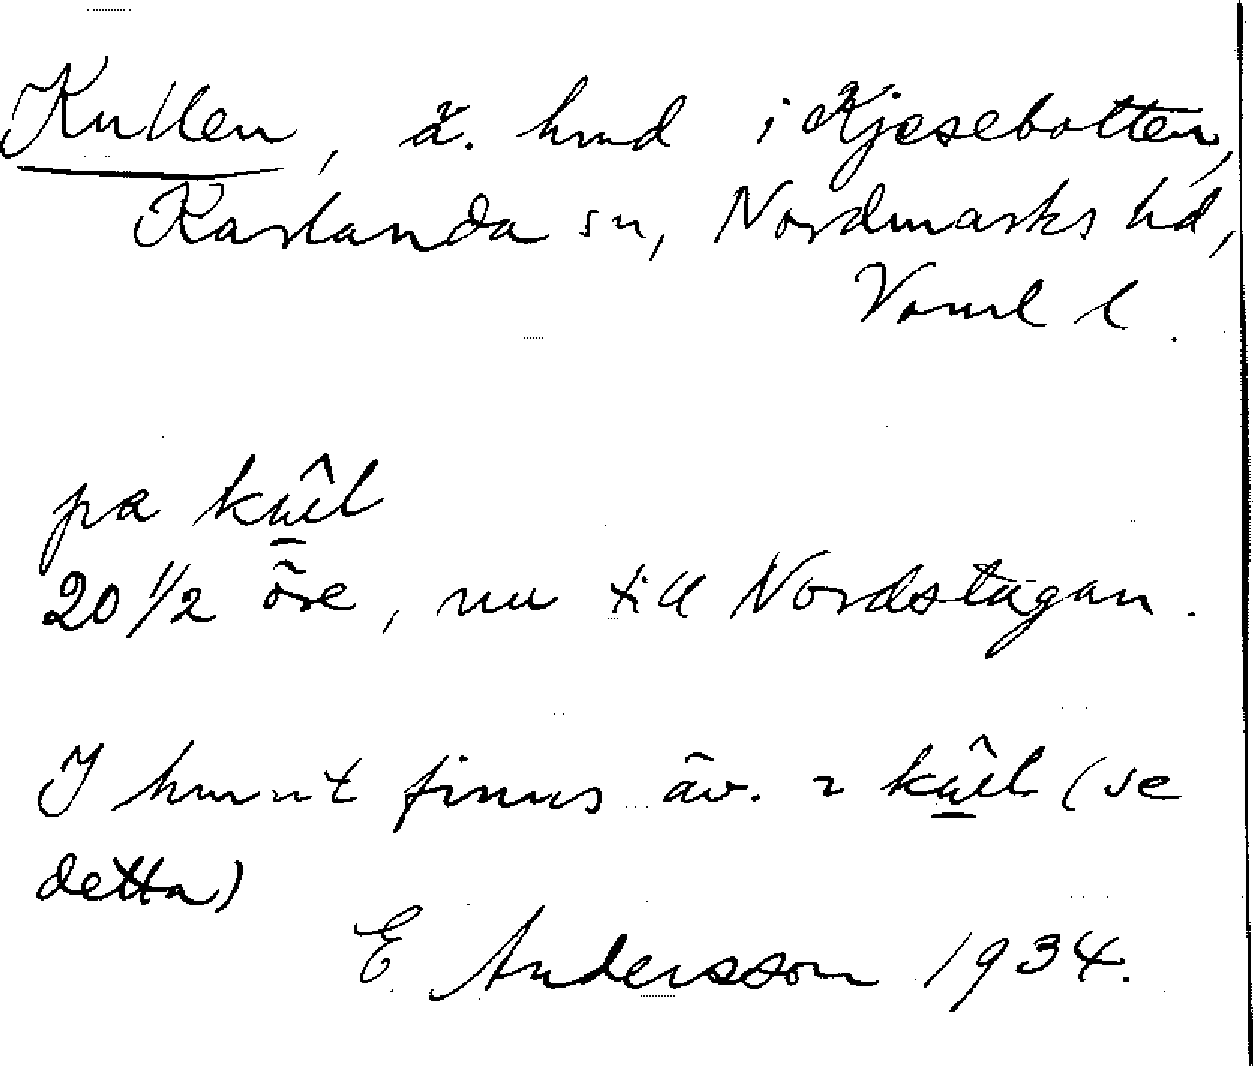 Kullen, ä. hmd i Kjesebotten,
Karlanda sn, Nordmarks hd,
Värml l.
på kûel
20 1/2 öre, nu till Nordstågan.
I hmnt finns äv. 2 kûel (se
detta)
E Andersson 1934.